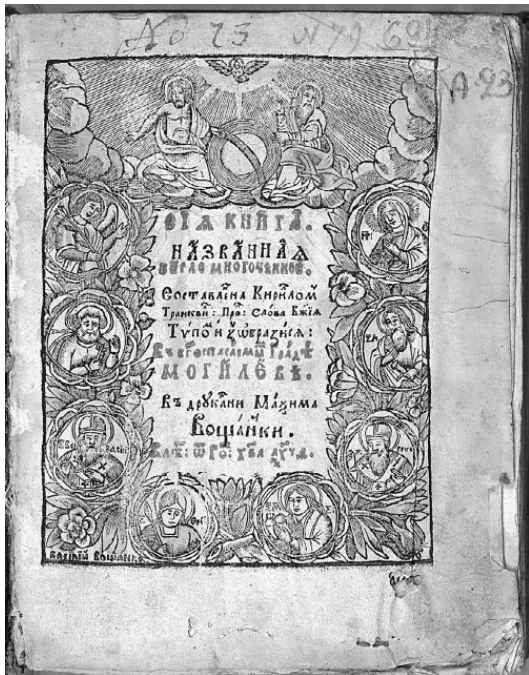 No 73 N 79 60
А 23
СІѦ КНИГА.
НАЗВАННАѦ
ПЕРЛО МНОГОЦѢННОЕ.
Составлена Кирилом
Транкви: Про: Слова Бжїѧ
Тѵпом и зѡбразисѧ:
Въ Бгоспасаемом Градѣ
МОГИЛЕВѢ.
Въ друкарни Маѯима
Вощанки.
ВАСИЛІЙ ВОЩАНКА